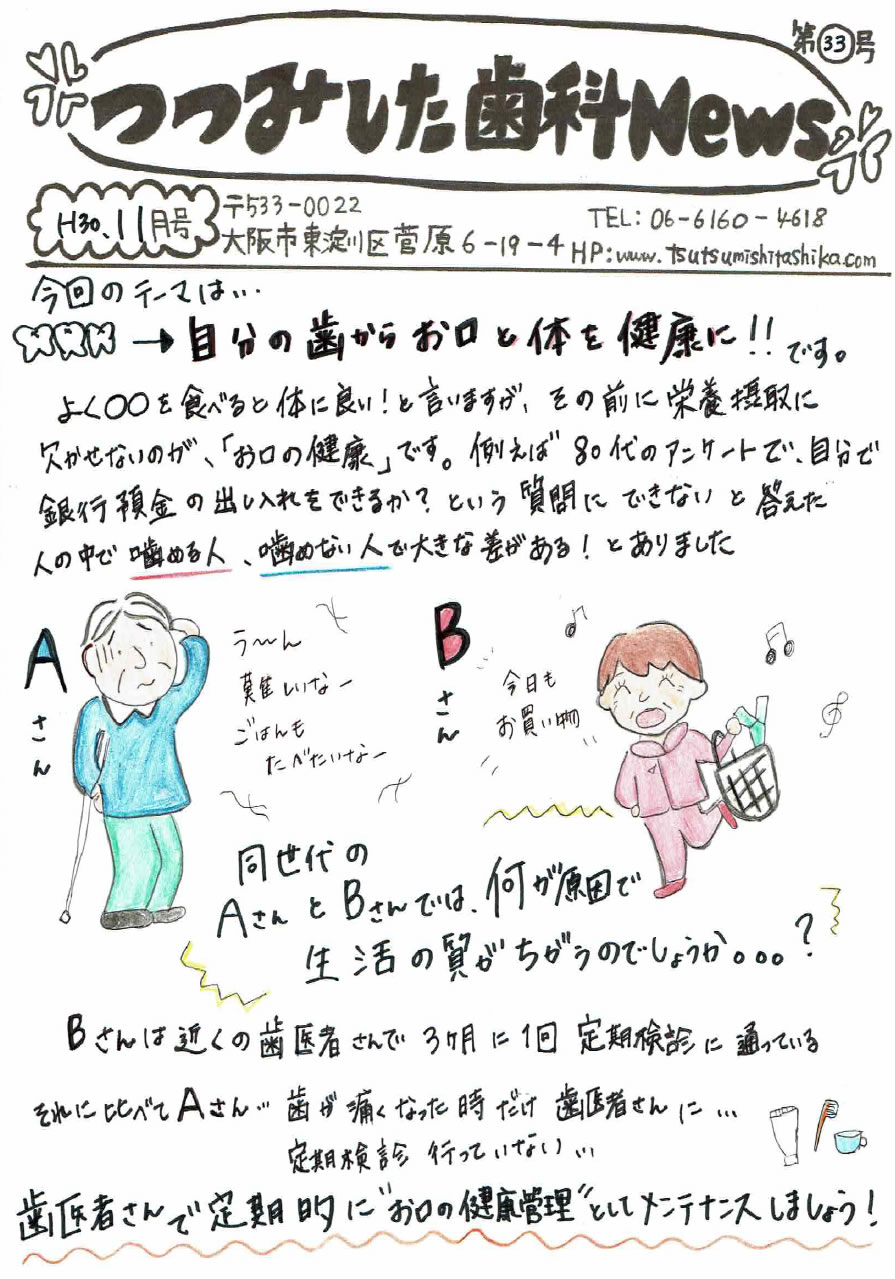 第33号
つつみした歯科News
H30.11月号
〒533-0022
大阪市東淀川区菅原6-19-4
TEL: 06-6160-4618
HP: www.tsutsumishitashika.com
今回のテーマは…
→自分の歯からお口と体を健康に!!です。
よく〇〇を食べると体に良い!と言いますが、その前に栄養摂取に
欠かせないのが、「お口の健康」です。例えば80代のアンケートで、自分で
銀行預金の出し入れをできるか?という質問にできないと答えた
人の中で噛める人、噛めない人で大きな差がある!とありました
Aさん
う〜ん
難しいなー
ごはんも
たべたいなー
Bさん
今日も
お買い物
同世代の
AさんとBさんでは、何が原因で
生活の質がちがうのでしょうか。。。?
Bさんは近くの歯医者さんで3ヶ月に1回定期検診に通っている
それに比べてAさん…歯が痛くなった時だけ歯医者さんに…
定期検診行っていない…
歯医者さんで定期的に"お口の健康管理"としてメンテナンスしましょう!